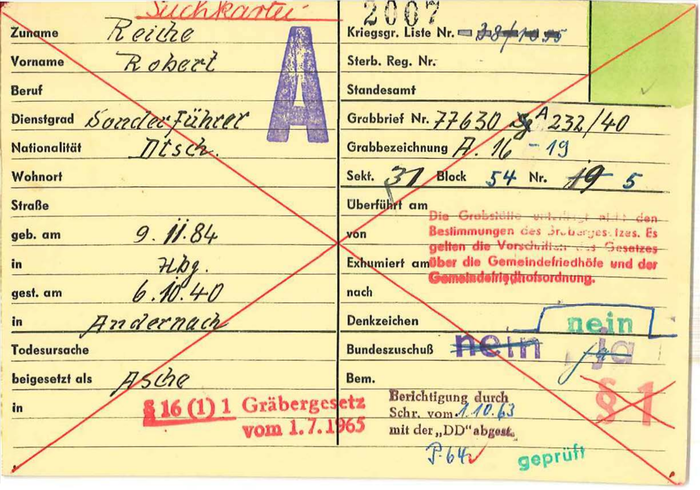 Suchkartei
2007
Zuname Reiche
Vorname Robert
A
Beruf
Dienstgrad Sonderführer
Nationalität Dtsch.
Wohnort
Straße
geb. am 9.11.84
in Hbg.
gest. am 6.10.40
in Andernach
Todesursache
beigesetzt als Asche
in
§ 16 (1) 1 Gräbergesetz
vom 1.7.1965
Kriegsgr. Liste Nr.
Sterb. Reg. Nr.
Standesamt
Grabbrief Nr. 77630 A 232/40
Grabbezeichnung A. 16 - 19
Sekt. 31 Block 54 Nr. 19 5
Überführt am
von
Die Grabstätte unterliegt nicht den
Bestimmungen des Gräbergesetzes. Es
gelten die Vorschriften des Gesetzes
über die Gemeindefriedhöfe und der
Gemeindefriedhofsordnung.
Exhumiert am
nach
Denkzeichen nein
Bundeszuschuß nein Ja ja
Bem.
§ 1
Berichtigung durch
Schr. vom 1.10.63
mit der „DD" abgest.
P-64
geprüft